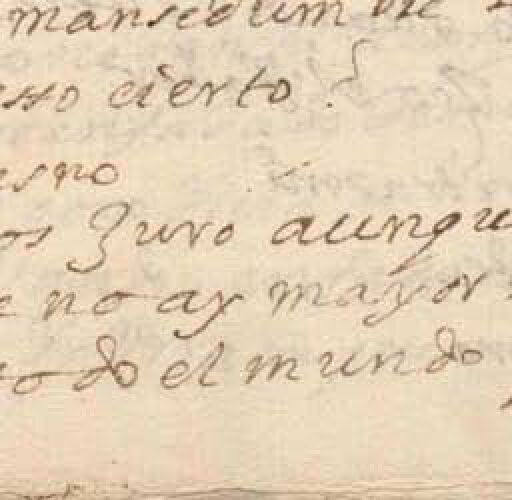 mansedum
sso cierto.
esno
os Zuro aunqu
e no ay mayor
todo el mundo